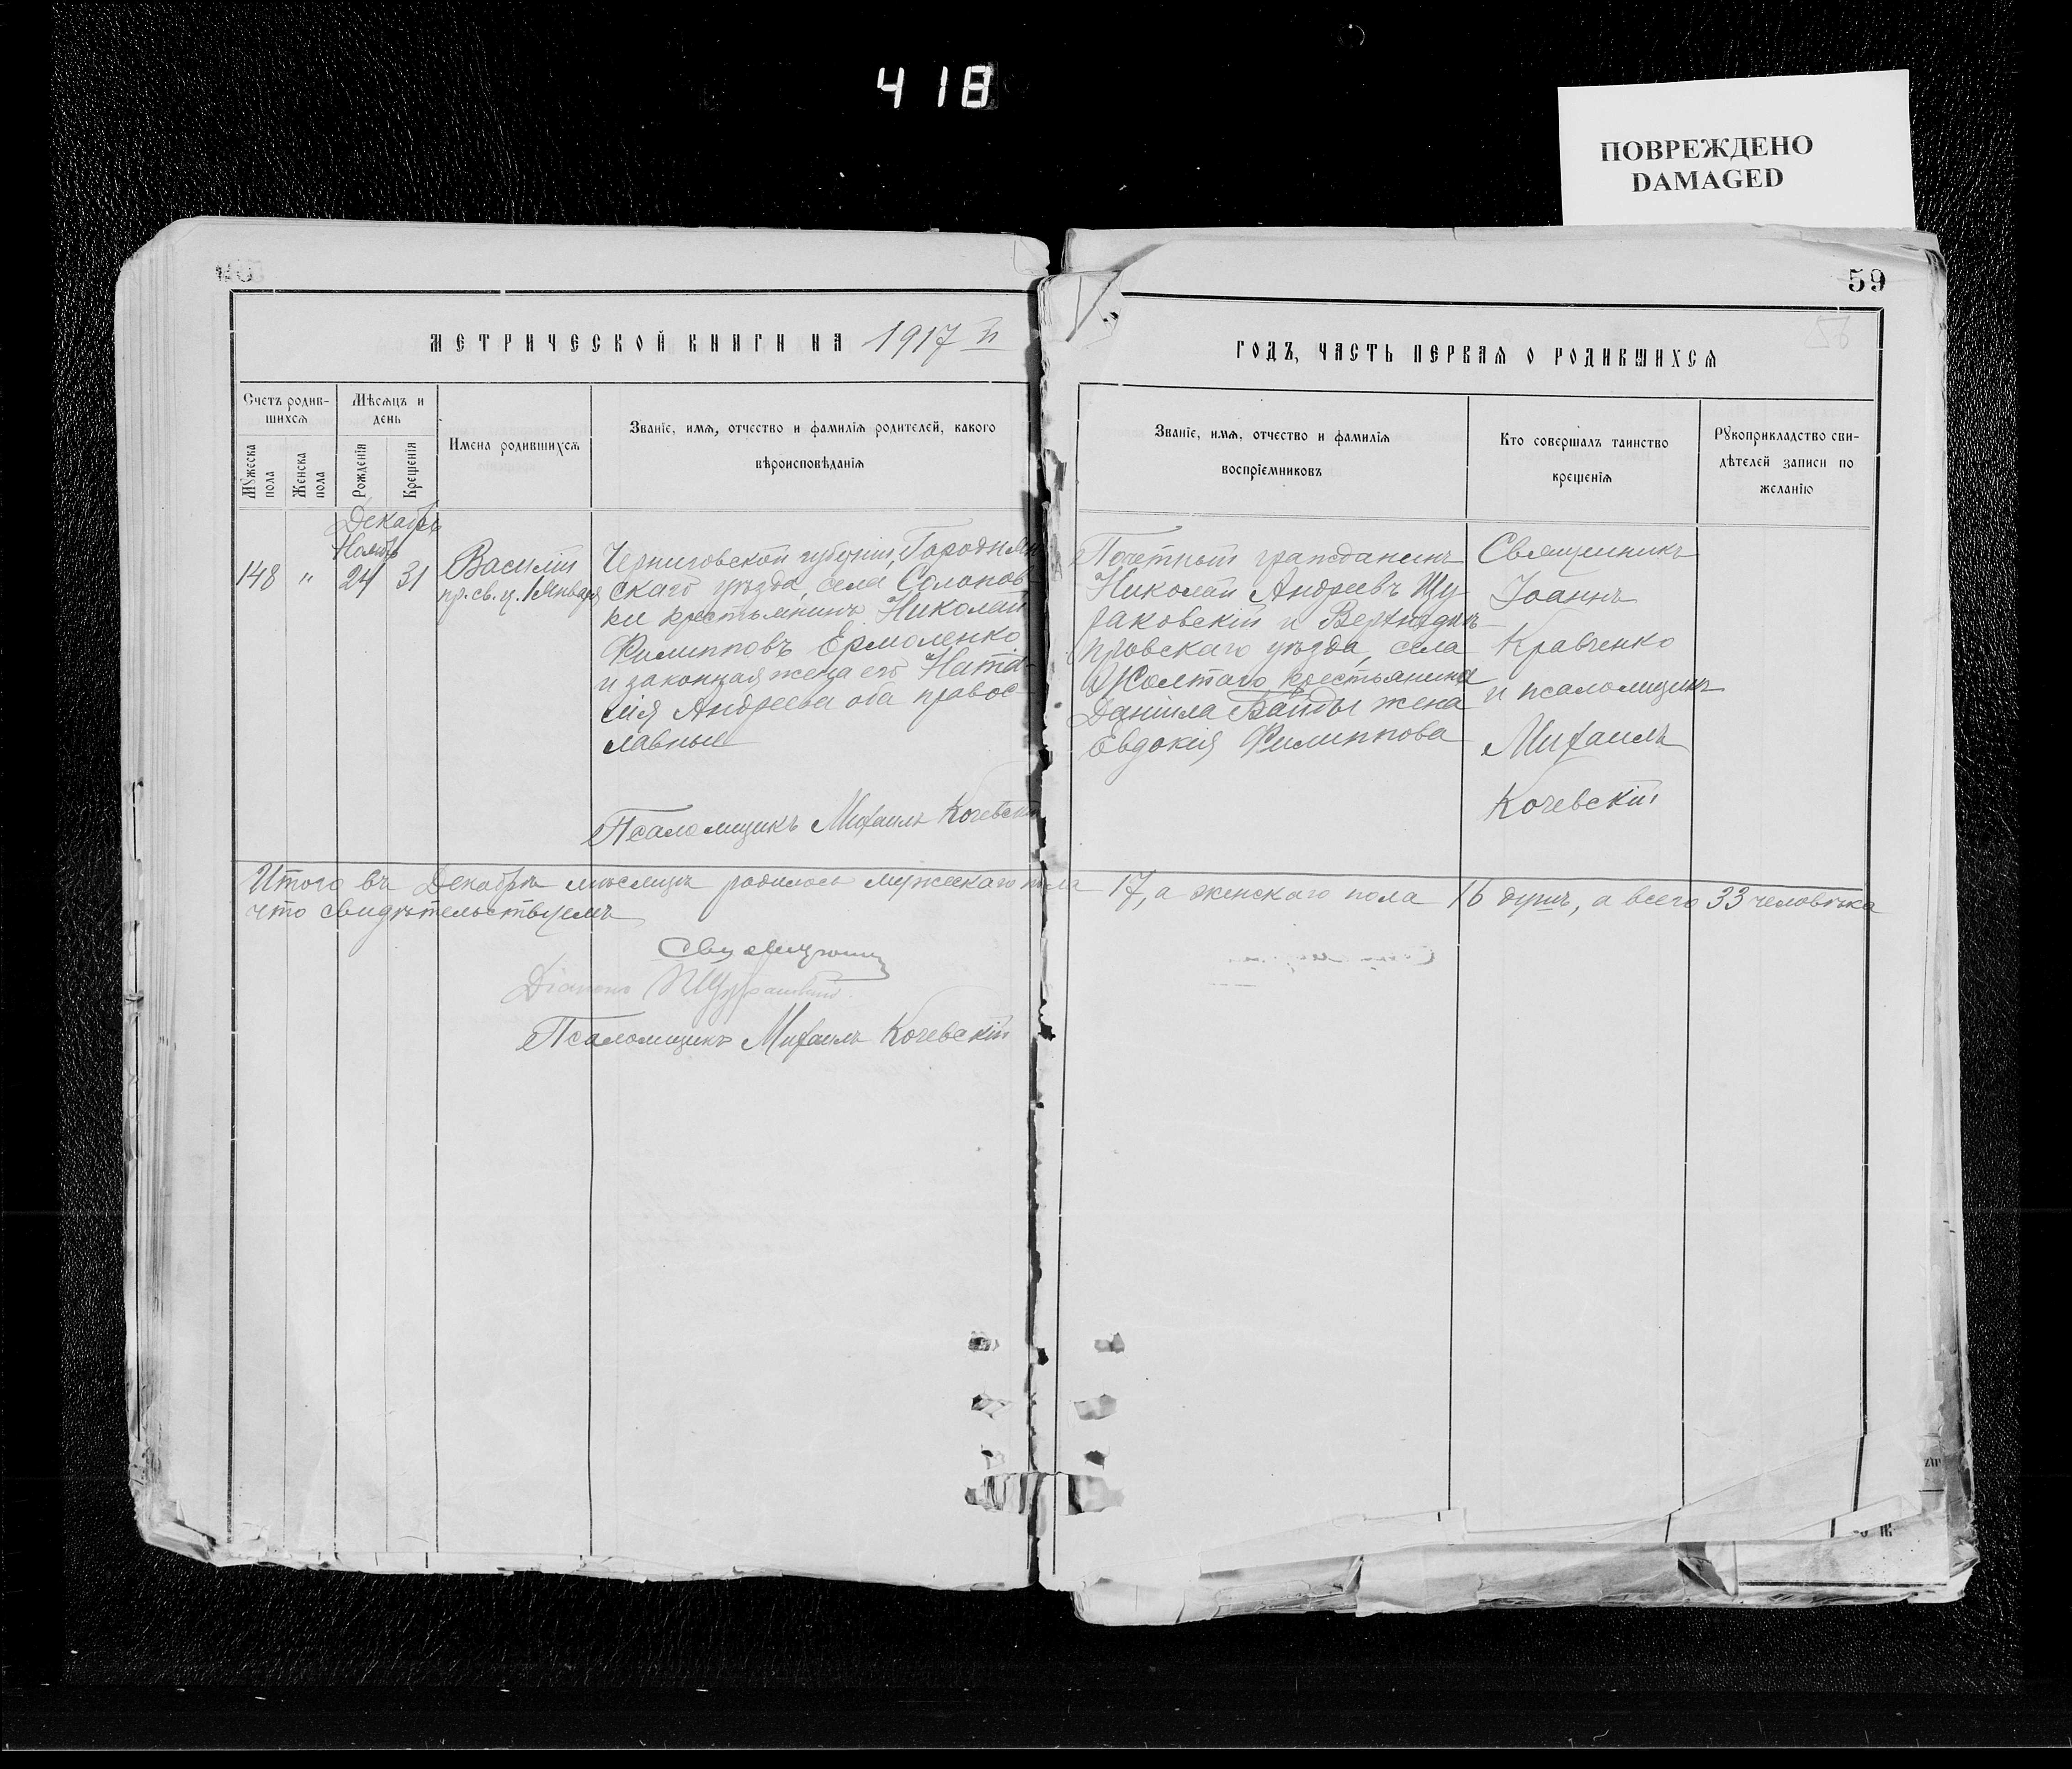 418
ПОВРЕЖДЕНО
DAMAGED
59
МЕТРИЧЕСКОЙ КНИГИ НА 1917 й
ГОДЪ, ЧАСТЬ ПЕРВАЯ О РОДИВШИХСЯ
Счетъ родив-
шихся
Мѣсяцъ и
день
Мужеска
пола
Женска
пола
Рожденія
Крещенія
Имена родившихся
Званіе, имя, отчество и фамилія родителей, какого
вѣроисповѣданія
Званіе, имя, отчество и фамилія
воспріемниковъ
Кто совершалъ таинство
крещенія
Рукоприкладство сви-
дѣтелей записи по
желанію
Декабрь
Ноябрь
148 " 24 31
Василій
пр. св. ц. 1 Января
Черниговской губерніи, Городнян
скаго уѣзда, села Солонов-
ки крестьянинъ Николай
Филипповъ Ермоленко
и законная жена его Ната-
лія Андреева оба правос-
лавные
Псаломщикъ Михаилъ Кочевскій
Почетный гражданинъ
Николай Андреевъ Щу-
раковскій и Верхнеднѣ-
провскаго уѣзда, села
Жолтаго крестьянина
Даніила Байды жена
Евдокія Филиппова
Священникъ
Іоаннъ
Кравченко
и псаломщикъ
Михаилъ
Кочевскій
Итого въ Декабрѣ мѣсяцѣ родилось мужескаго пола 17, а женскаго пола 16 душъ, а всего 33 человѣка
что свидѣтельствуемъ
Діаконъ
Псаломщикъ Михаилъ Кочевскій